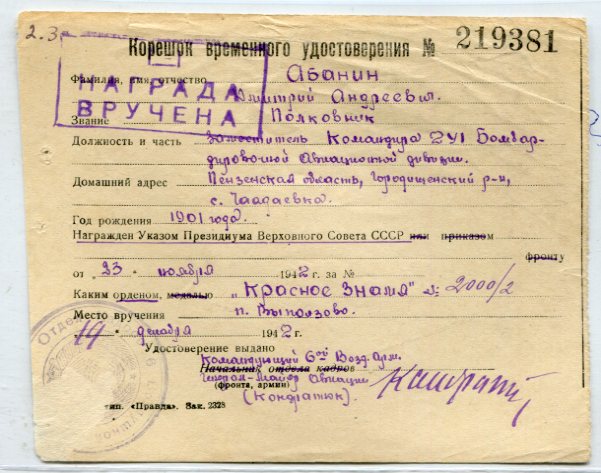 2.3
Корешок временного удостоверения № 219381
НАГРАДА
ВРУЧЕНА
Фамилия, имя, отчество Абанин
Дмитрий Андреевич.
Звание Полковник
Должность и часть Заместитель Командира 241 Бомбар-
дировочной Авиационной дивизии.
Домашний адрес Пензенская область, Городищенский р-н,
с. Чаадаевка.
Год рождения 1901 года.
Награжден Указом Президиума Верховного Совета СССР или приказом
фронту
от „23" ноября 1942 г. за №
Каким орденом, медалью „Красное Знамя" № 2000/2
Место вручения п. Выползово.
„19" декабря 1942 г.
Удостоверение выдано
Командующий 6ой Возд. Арм.
Начальник отдела кадров
Генерал-Майор Авиации
(фронта, армии)
(Кондратюк).
тип. «Правда». Зак. 2328